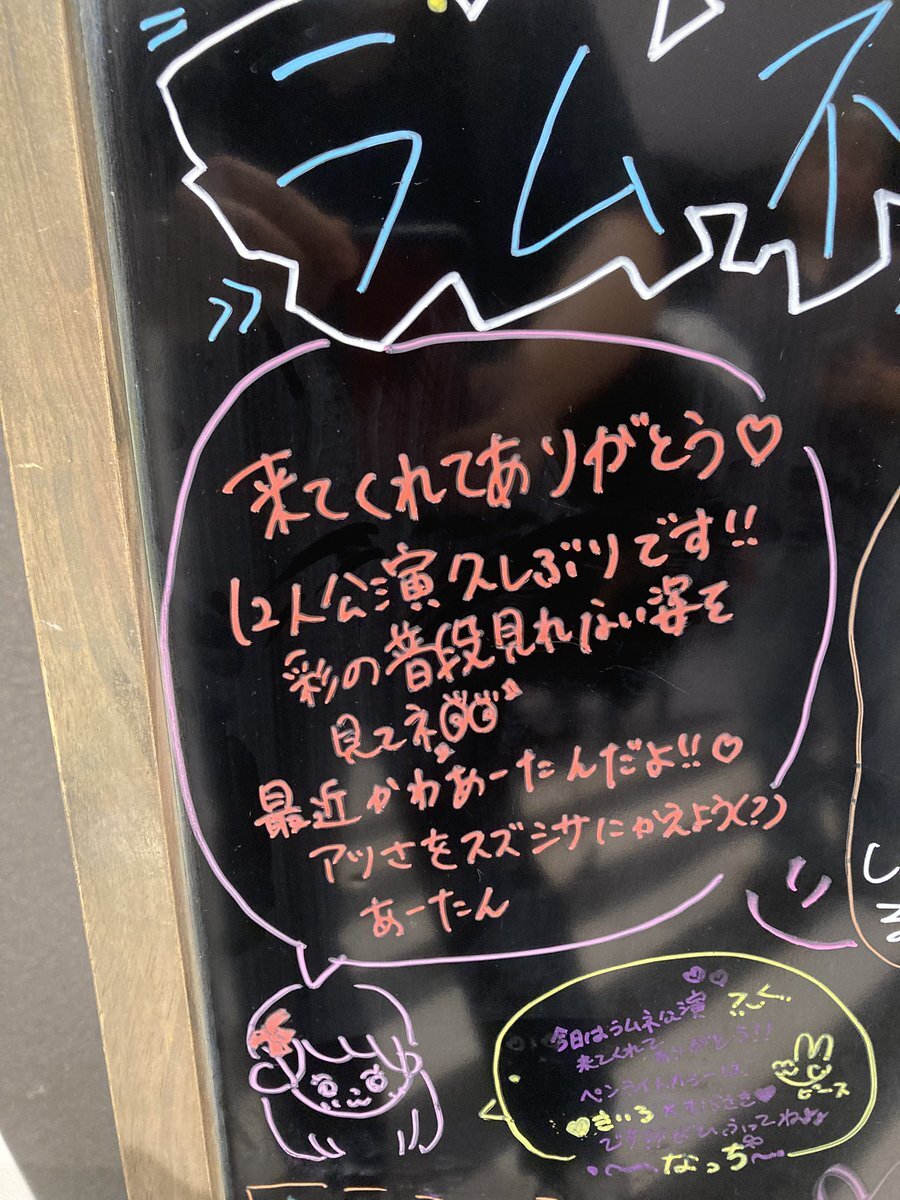 ラムネ
来てくれてありがとう♡
12人公演久しぶりです!!
彩の普段見れない姿を
見てネ
最近かわあーたんだよ!!♡
アツさをスズシサにかえよう(?)
あーたん
今日はラムネ公演
来てくれてありがとう!!
ペンライトカラーは
♡きいろ×むらさき♥
ピース
なっち